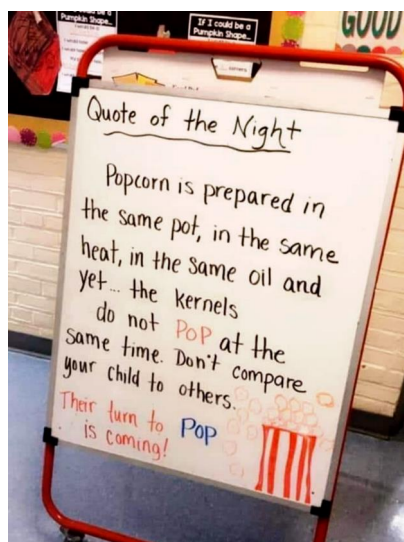 If I could be a
Pumpkin Shape...
GOOD
Quote of the Night
Popcorn is prepared in
the same pot, in the same
heat, in the same oil and
yet... the kernels
do not POP at the
same time. Don't compare
your child to others.
Their turn to POP
is coming!